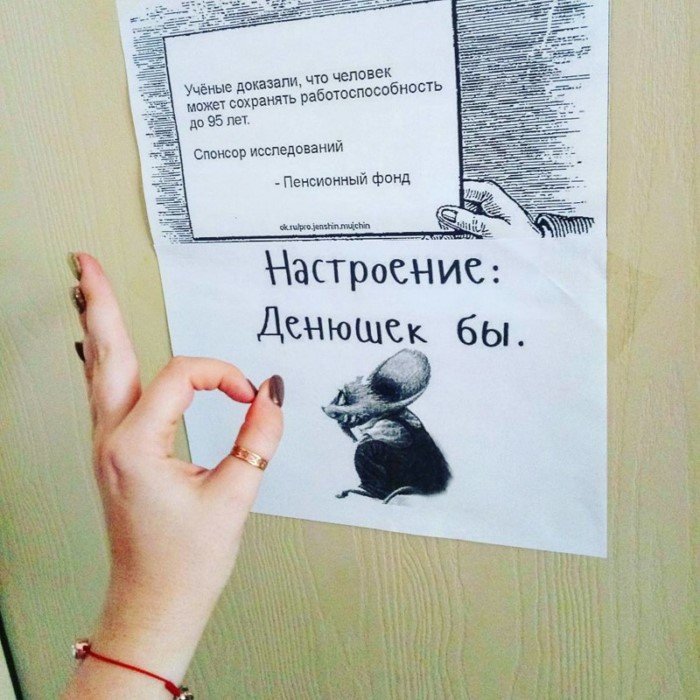 Учёные доказали, что человек
может сохранять работоспособность
до 95 лет.
Спонсор исследований
- Пенсионный фонд
ok.ru/pro.jenshin.mujchin
Настроение:
Денюшек бы.